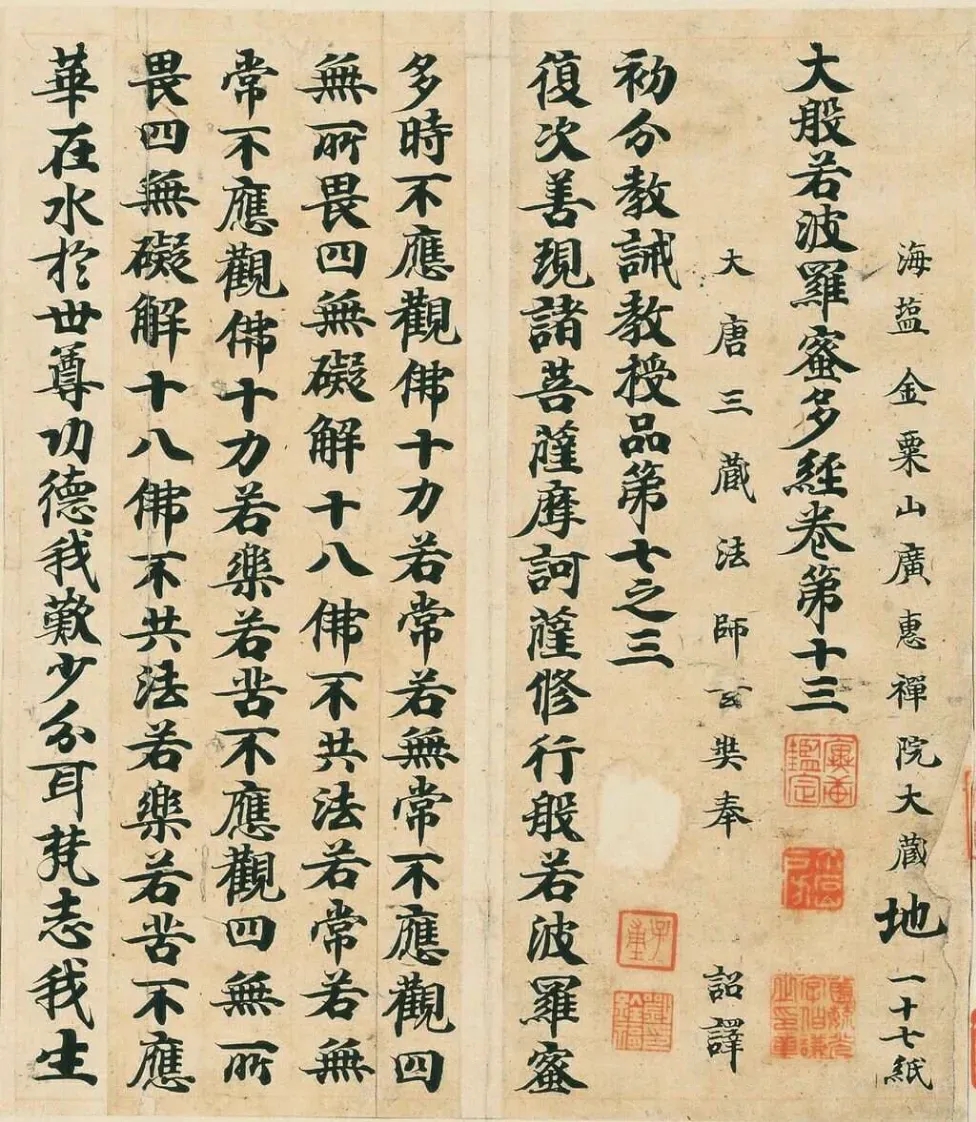 海塩金粟山廣惠禪院大藏地一十七紙
大般若波羅蜜多經卷第十三
大唐三藏法師玄奘奉詔譯
初分教誡教授品第七之三
復次善現諸菩薩摩訶薩修行般若波羅蜜
多時不應觀佛十力若常若無常不應觀四
無所畏四無礙解十八佛不共法若常若無
常不應觀佛十力若樂若苦不應觀四無所
畏四無礙解十八佛不共法若樂若苦不應
華在水於世尊功德我歎少分耳梵志我生